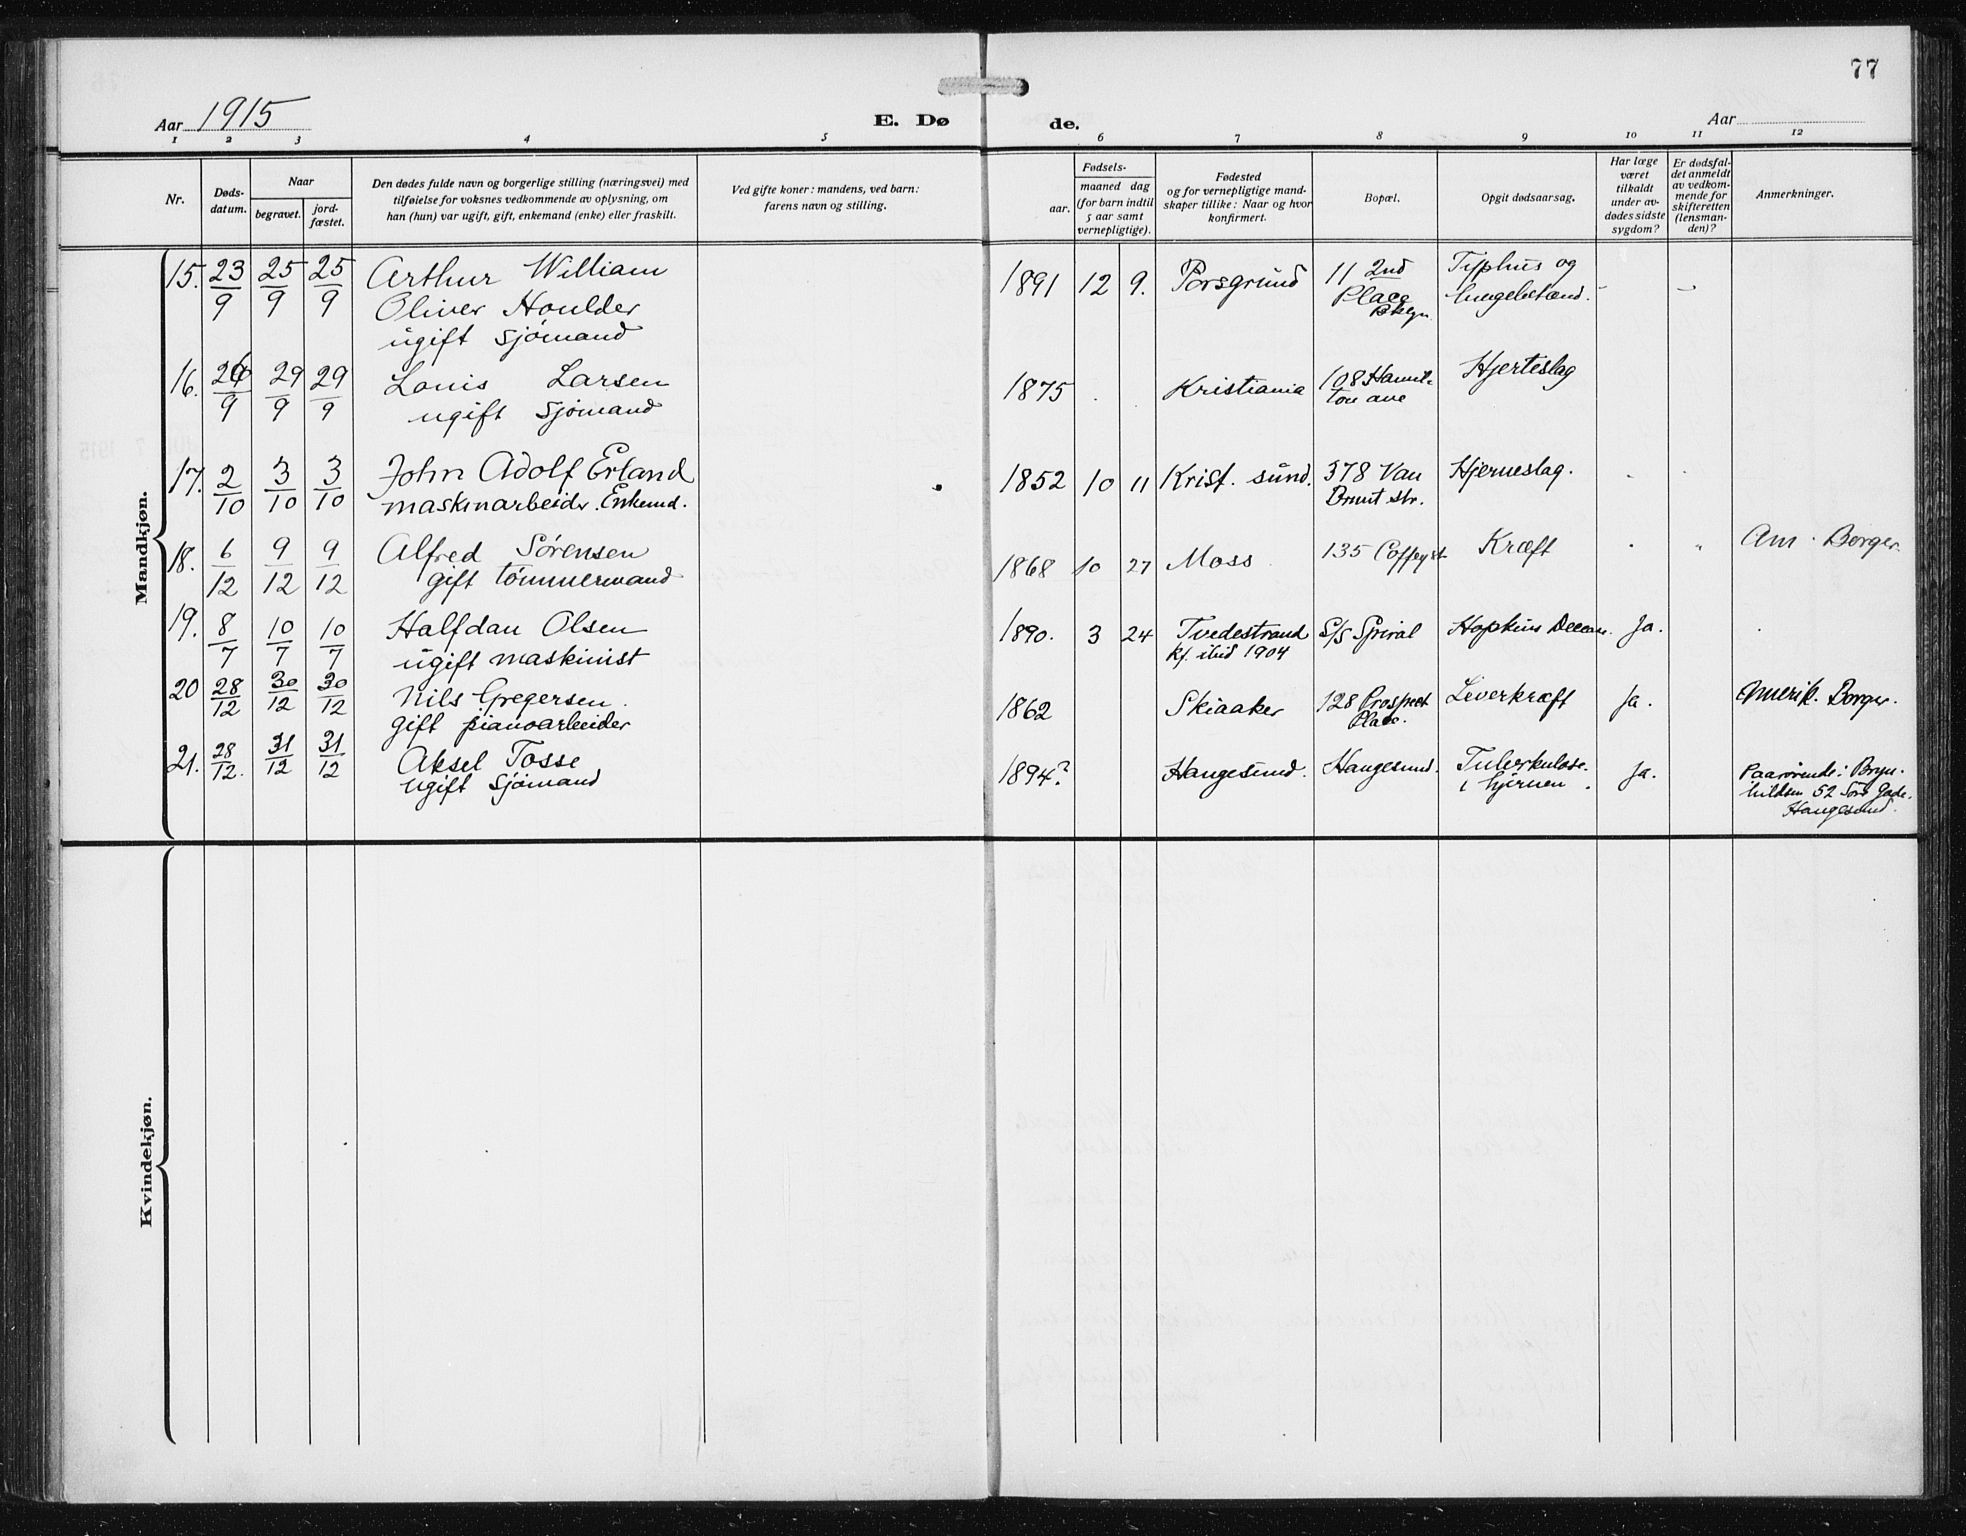 77
Aar 1915
E. Dø
de.
Aar
1 2 3 4 5 6 7 8 9 10 11 12
Nr.
Døds-
datum.
Naar
begravet.
jord-
fæstet.
Den dødes fulde navn og borgerlige stilling (næringsvei) med
tilføielse for voksnes vedkommende av oplysning, om
han (hun) var ugift, gift, enkemand (enke) eller fraskilt.
Ved gifte koner: mandens, ved barn:
farens navn og stilling.
Fødsels-
aar.
maaned dag
(for barn indtil
5 aar samt
vernepligtige).
Fødested
og for vernepligtige mand-
skaper tillike: Naar og hvor
konfirmert.
Bopæl.
Opgit dødsaarsag.
Har læge
været
tilkaldt
under av-
dødes sidste
sygdom?
Er dødsfal-
det anmeldt
av vedkom-
mende for
skifteretten
(lensman-
den)?
Anmerkninger.
Mandkjøn.
15. 23/9 25/9 25/9 Arthur William
Oliver Houlder
ugift Sjömand
1891 12 9. Porsgrund 11 2nd
Place
Bklyn.
Typhus og
lungebetænd.
16. 26/9 29/9 29/9 Louis Larsen
ugift Sjömand
1875 Kristiania 108 Hamil-
ton ave
Hjerteslag
17. 2/10 3/10 3/10 John Adolf Erland
maskinarbeider. Enkemd.
1852 10 11 Krist. sund. 378 Van
Brunt str.
Hjerneslag.
18. 6/12 9/12 9/12 Alfred Sørensen
gift tömmermand
1868 10 27 Moss 135 Coffey st Kræft Am. Borger.
19. 8/7 10/7 10/7 Halfdan Olsen
ugift maskinist
1890. 3 24 Tvedestrand
kf. ibid 1904
S/S Spiral Hopkins Ja.
20 28/12 30/12 30/12 Nils Gregersen.
gift pianoarbeider
1862 Skiaaker 128 Prospect
Place.
Leverkræft Ja. Amerik. Borger.
21. 28/12. 31/12 31/12 Aksel Tosse
ugift Sjömand
1894? Haugesund. Haugesund. Tuberkulose
i hjernen.
Ja. Paarörende: Bryn-
hildsen 52 Gade.
Haugesund.
Kvindekjøn.